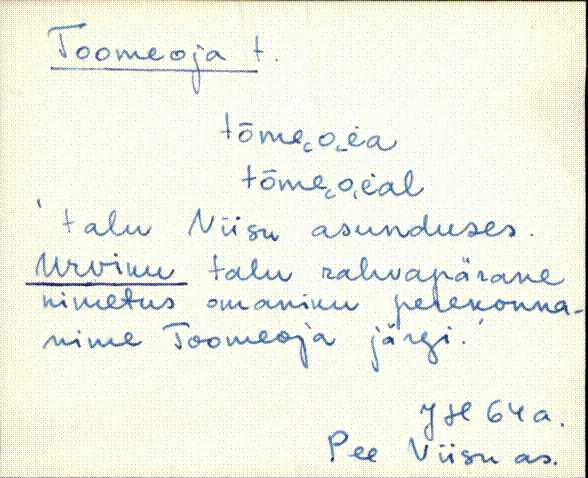 Toomeoja t.
tōme˛o˛ėa
tōme˛o˛ėal
'talu Viisu asunduses.
Urviku talu rahvapärane
nimetus omaniku perekonna-
nime Toomeoja järgi.'
JH 64 a.
Pee Viisu as.